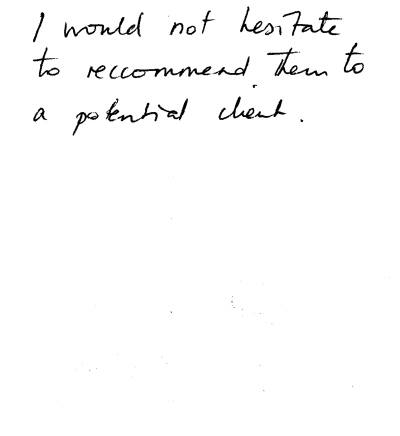 I would not hesitate
to reccommend them to
a potential client.